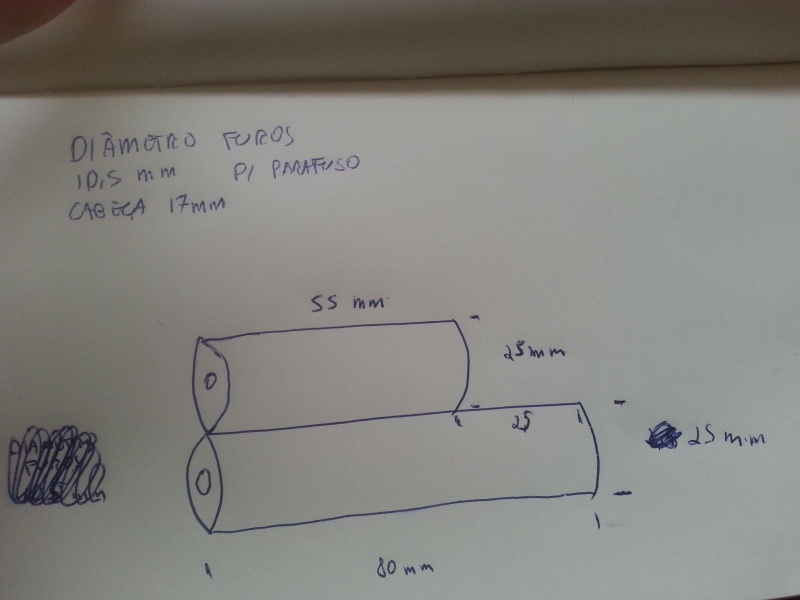 DIÂMETRO FUROS
10,5 mm P/ PARAFUSO
CABEÇA 17mm
55 mm
25mm
25
25 mm
80 mm